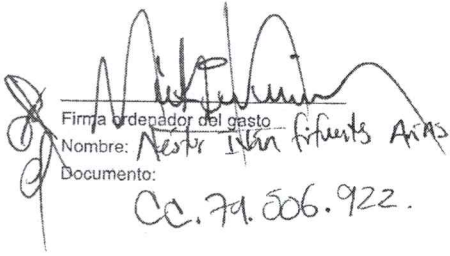 Firma ordenador del gasto
Nombre: Néstor Iván Arias
Documento:
CC. 79.506.922.